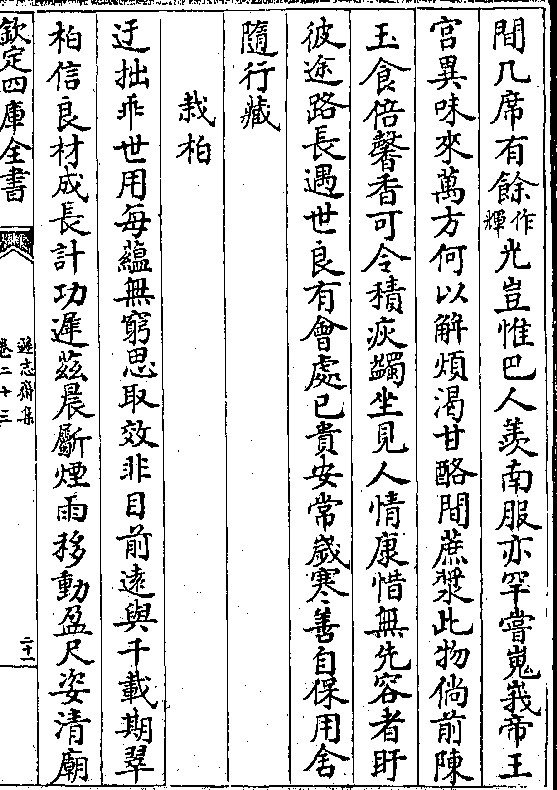 間几席有餘作輝光豈惟巴人羡南服亦罕嘗嵬峩帝王
宫異味來萬方何以解煩渴甘酪間蔗漿此物倘前陳
玉食倍馨香可令積疢蠲坐見人情康惜無先容者盱
彼途路長遇世良有會處已貴安常歲寒善自保用舍
隨行藏
栽柏
迂拙乖世用每藴無窮思取效非目前逺與千載期翠
柏信良材成長計功遲兹晨斸煙雨移動盈尺姿清廟
欽定四庫全書
遜志齋集
卷二十三
二十一